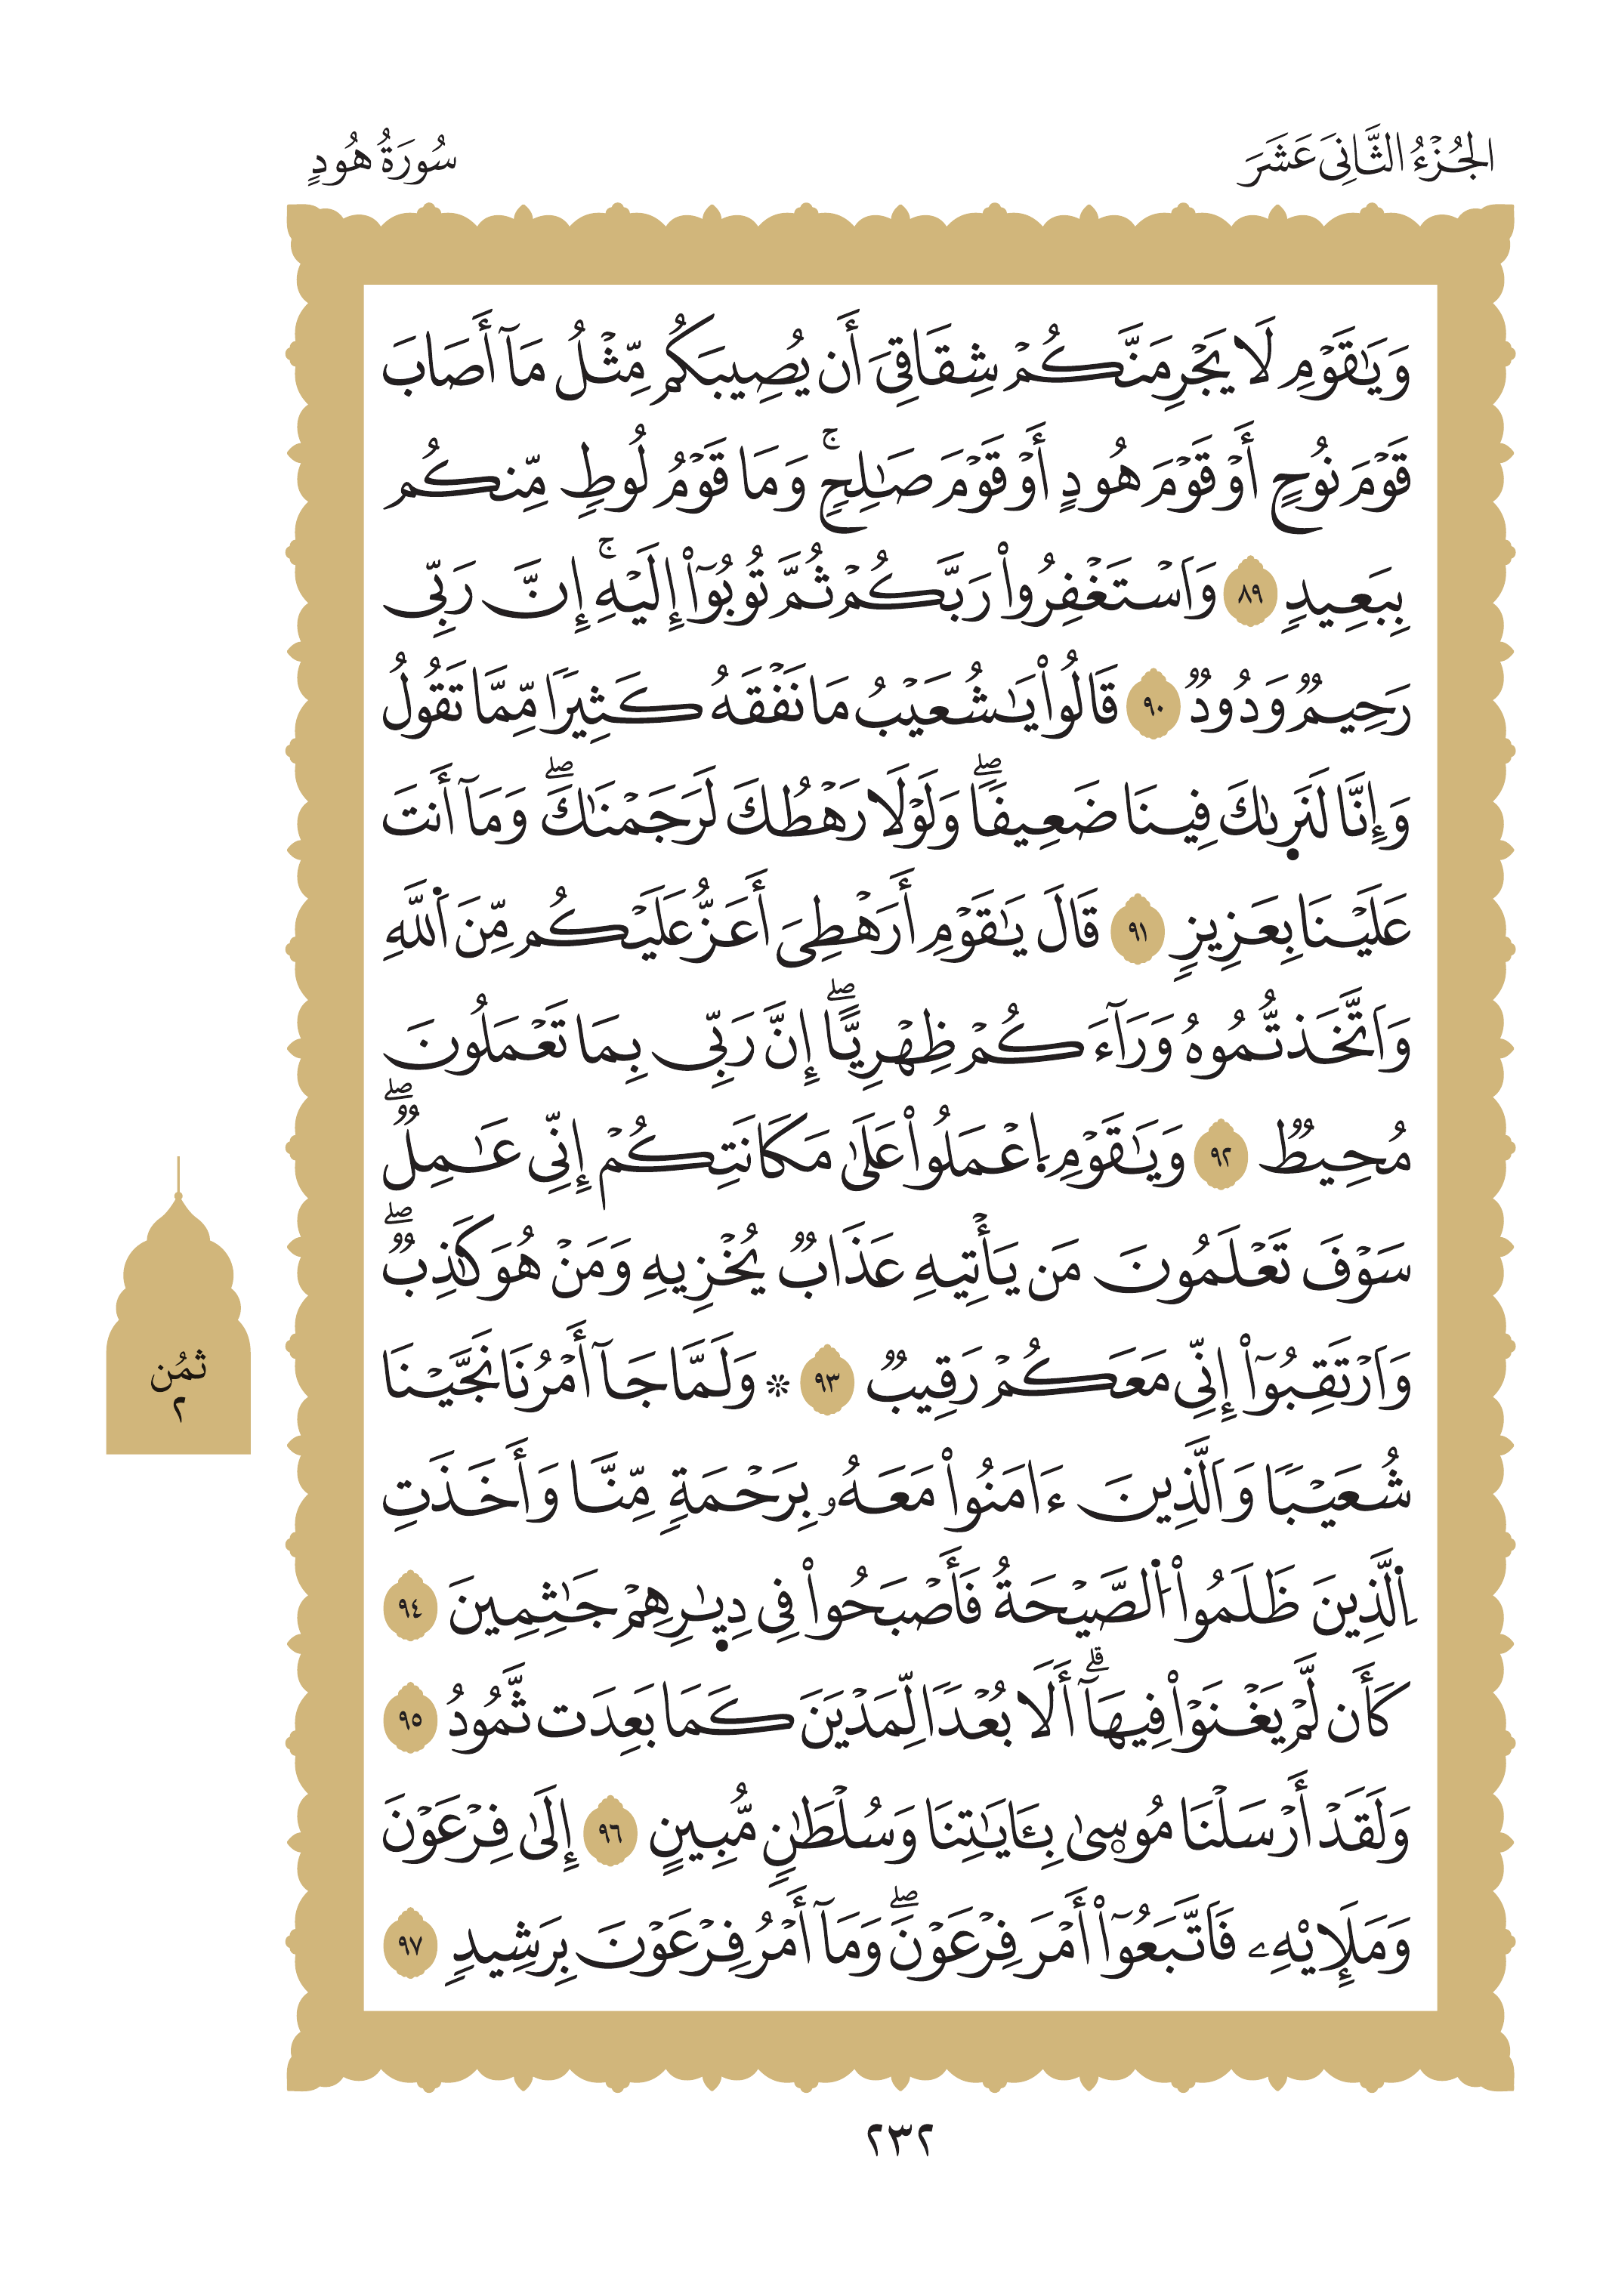 الجُزْءُ الثَّانِيَ عَشَرَ
سُورَةُ هُودٍ
وَيَٰقَوْمِ لَا يَجْرِمَنَّكُمْ شِقَاقِيَ أَن يُصِيبَكُم مِّثْلُ مَآ أَصَابَ
قَوْمَ نُوحٍ أَوْ قَوْمَ هُودٍ أَوْ قَوْمَ صَٰلِحٍۚ وَمَا قَوْمُ لُوطٍ مِّنكُم
بِبَعِيدٍ ٨٩ وَاَسْتَغْفِرُواْ رَبَّكُمْ ثُمَّ تُوبُوٓاْ إِلَيْهِۚ إِنَّ رَبِّي
رَحِيمٌ وَدُودٌ ٩٠ قَالُواْ يَٰشُعَيْبُ مَا نَفْقَهُ كَثِيرًا مِّمَّا تَقُولُ
وَإِنَّا لَنَرٜىٰكَ فِينَا ضَعِيفًاۖ وَلَوْلَا رَهْطُكَ لَرَجَمْنَٰكَۖ وَمَآ أَنتَ
عَلَيْنَا بِعَزِيزٍ ٩١ قَالَ يَٰقَوْمِ أَرَهْطِيَ أَعَزُّ عَلَيْكُم مِّنَ اَ۬للَّهِ
وَاَتَّخَذتُّمُوهُ وَرَآءَكُمْ ظِهْرِيًّاۖ إِنَّ رَبِّي بِمَا تَعْمَلُونَ
مُحِيطٌ ٩٢ وَيَٰقَوْمِ اِ۪عْمَلُواْ عَلَىٰ مَكَانَتِكُمْ إِنِّي عَٰمِلٌۖ
سَوْفَ تَعْلَمُونَ مَن يَأْتِيهِ عَذَابٌ يُخْزِيهِ وَمَنْ هُوَ كَٰذِبٌۖ
وَاَرْتَقِبُوٓاْ إِنِّي مَعَكُمْ رَقِيبٌ ٩٣ ۞ وَلَمَّا جَآ أَمْرُنَا نَجَّيْنَا
شُعَيْبًا وَاَلَّذِينَ ءَامَنُواْ مَعَهُۥ بِرَحْمَةٍ مِّنَّا وَأَخَذَتِ
اِ۬لَّذِينَ ظَلَمُواْ اُ۬لصَّيْحَةُ فَأَصْبَحُواْ فِي دِيٰٜرِهِمْ جَٰثِمِينَ ٩٤
كَأَن لَّمْ يَغْنَوْاْ فِيهَآۗ أَلَا بُعْدًا لِّمَدْيَنَ كَمَا بَعِدَت ثَّمُودُ ٩٥
وَلَقَدْ أَرْسَلْنَا مُوسٜىٰ بِـَٔايَٰتِنَا وَسُلْطَٰنٍ مُّبِينٍ ٩٦ إِلَىٰ فِرْعَوْنَ
وَمَلَإِيْهِۦ فَاَتَّبَعُوٓاْ أَمْرَ فِرْعَوْنَۖ وَمَآ أَمْرُ فِرْعَوْنَ بِرَشِيدٍ ٩٧
ثمُن
٢
٢٣٢